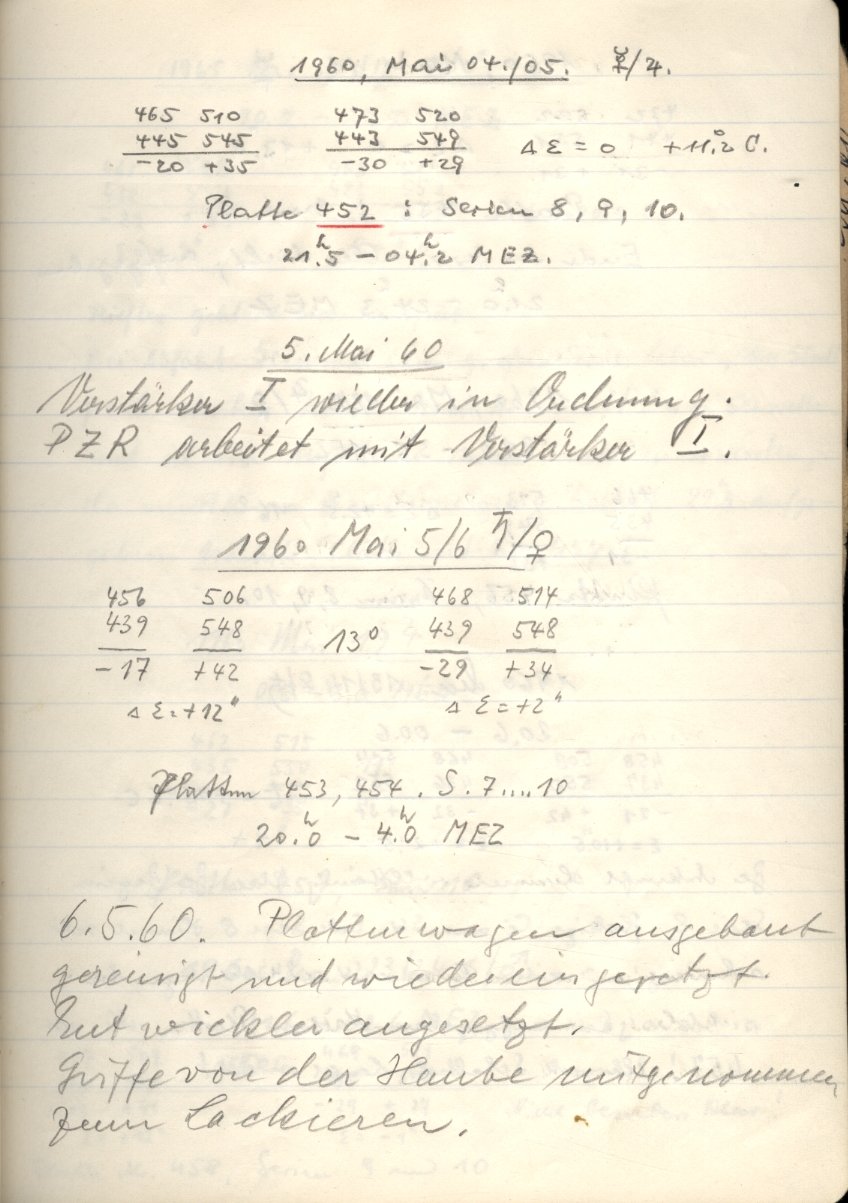 1960, Mai 04./05. ☿/4.
465 510 473 520
445 545 443 549 Δ ε = 0 +11,°2 C.
-20 +35 -30 +29
Platte 452 : Serien 8, 9, 10.
21.ʰ5 – 04.ʰ2 MEZ.
5. Mai 60
Verstärker I wieder in Ordnung.
PZR arbeitet mit Verstärker I.
1960 Mai 5/6 ♄/♀
456 506 468 514
439 548 13° 439 548
-17 +42 -29 +34
Δ ε = +12" Δ ε = +2"
Platten 453, 454. S. 7....10
20.ʰ0 – 4.ʰ0 MEZ
6.5.60. Plattenwagen ausgebaut
gereinigt und wieder eingesetzt.
Entwickler angesetzt.
Griffe von der Haube mitgenommen
zum Lackieren.